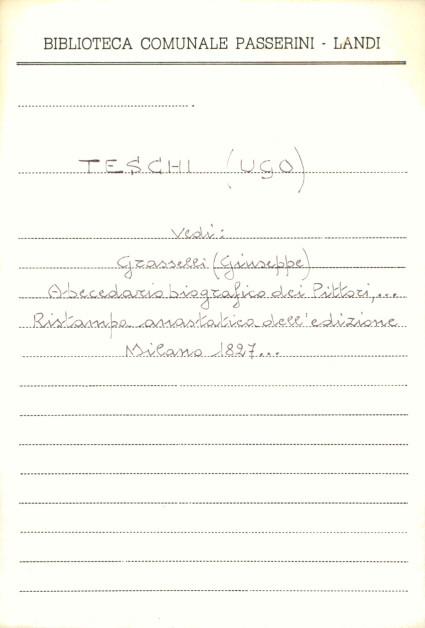 BIBLIOTECA COMUNALE PASSERINI - LANDI
TESCHI (UGO)
Vedi:
Grasselli (Giuseppe)
Abecedario biografico dei Pittori,...
Ristampa anastatica dell'edizione
Milano 1827...